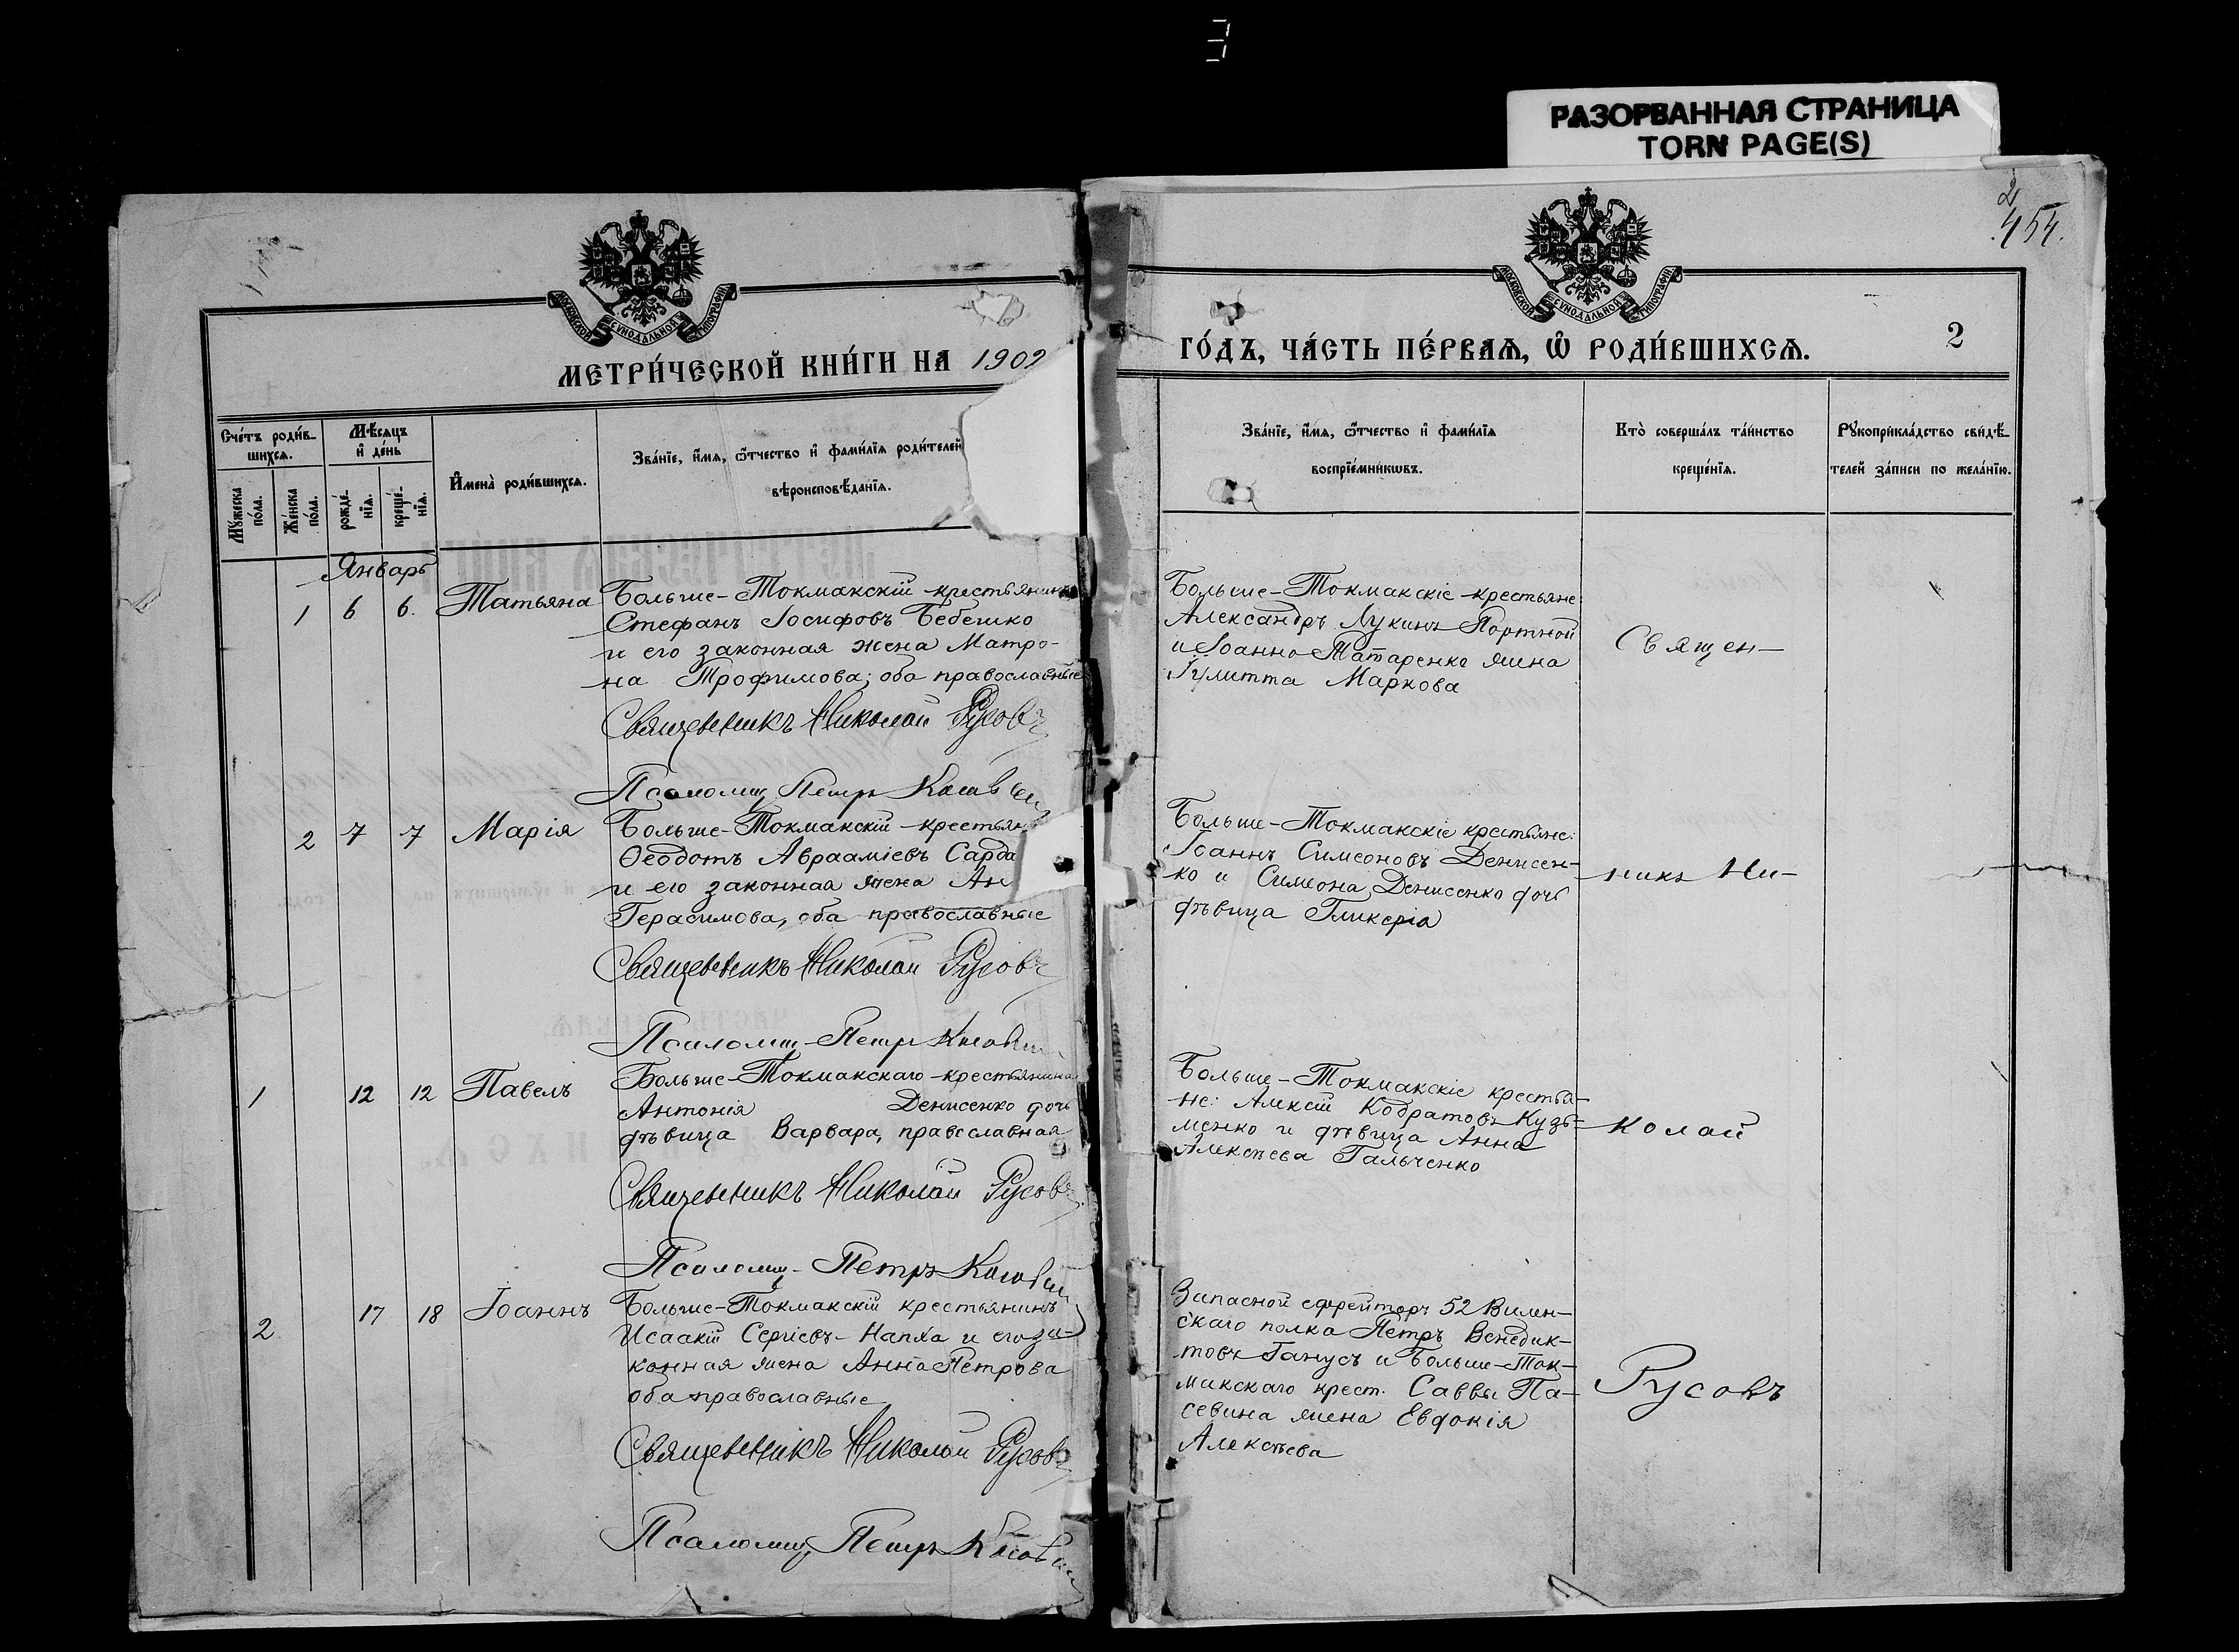 РАЗОРВАННАЯ СТРАНИЦА
TORN PAGE(S)
2
454.
МОСКОВСКОЙ СѴНОДАЛЬНОЙ ТИПОГРАФІИ
МОСКОВСКОЙ СѴНОДАЛЬНОЙ ТИПОГРАФІИ
МЕТРИ́ЧЕСКОЙ КНИ́ГИ НА 1902
ГО́ДЪ, ЧА́СТЬ ПЕ́РВАѦ, Ѡ҆ РОДИ́ВШИХСѦ.
2
Сче́тъ роди́в-
шихсѧ.
Мꙋ́жеска
по́ла.
Же́нска
по́ла.
Мѣ́сѧцъ
и҆ де́нь
рожде́-
нїѧ.
креще́-
нїѧ.
И҆мена̀ роди́вшихсѧ.
Зва́нїе, и҆́мѧ, ѻ҆́тчество и҆ фами́лїѧ роди́телей
вѣроисповѣ́данїѧ.
Зва́нїе, и҆́мѧ, ѻ҆́тчество и҆ фами́лїѧ
воспрїе́мникѡвъ.
Кто̀ соверша́лъ та́инство
креще́нїѧ.
Рꙋкоприкла́дство свидѣ́-
телей за́писи по жела́нїю.
Январь
1 6 6. Татьяна
Больше-Токмакскій крестьянинъ
Стефанъ Іосифовъ Бебешко
и его законная жена Матро-
на Трофимова; оба православные
Священникъ Николай Русовъ
Псаломщ. Петръ
Больше-Токмакскіе крестьяне:
Александръ Лукинъ Портной
и Іоанна Татаренко жена
Іулитта Маркова
Священ-
2 7 7 Марія
Больше-Токмакскій крестьян
Ѳеодотъ Авраамієвъ Сарда
и его законная жена Ан
Герасимова, оба православные
Священникъ Николай Русовъ
Псаломщ. Петръ
Больше-Токмакскіе крестьяне:
Іоаннъ Симеоновъ Денисен-
ко и Симеона Денисенко дочь
дѣвица Гликерія
никъ Ни-
1 12 12 Павелъ
Больше-Токмакскаго крестьянина
Антонія Денисенко дочь
дѣвица Варвара, православная
Священникъ Николай Русовъ
Псаломщ. Петръ
Больше-Токмакскіе крестья-
не: Алексій Кодратовъ Кузь-
менко и дѣвица Анна
Алексѣева Гальченко
колай
2 17 18 Іоаннъ
Больше-Токмакскій крестьянинъ
Исаакій Сергіевъ Напха и его за-
конная жена Анна Петрова
оба православные
Священникъ Николай Русовъ
Псаломщ. Петръ
Запасной ефрейторъ 52 Вилен-
скаго полка Петръ Венедик-
товъ Ганусъ и Больше-Ток-
макскаго крест. Саввы Па-
севина жена Евдокія
Алексѣева
Русовъ